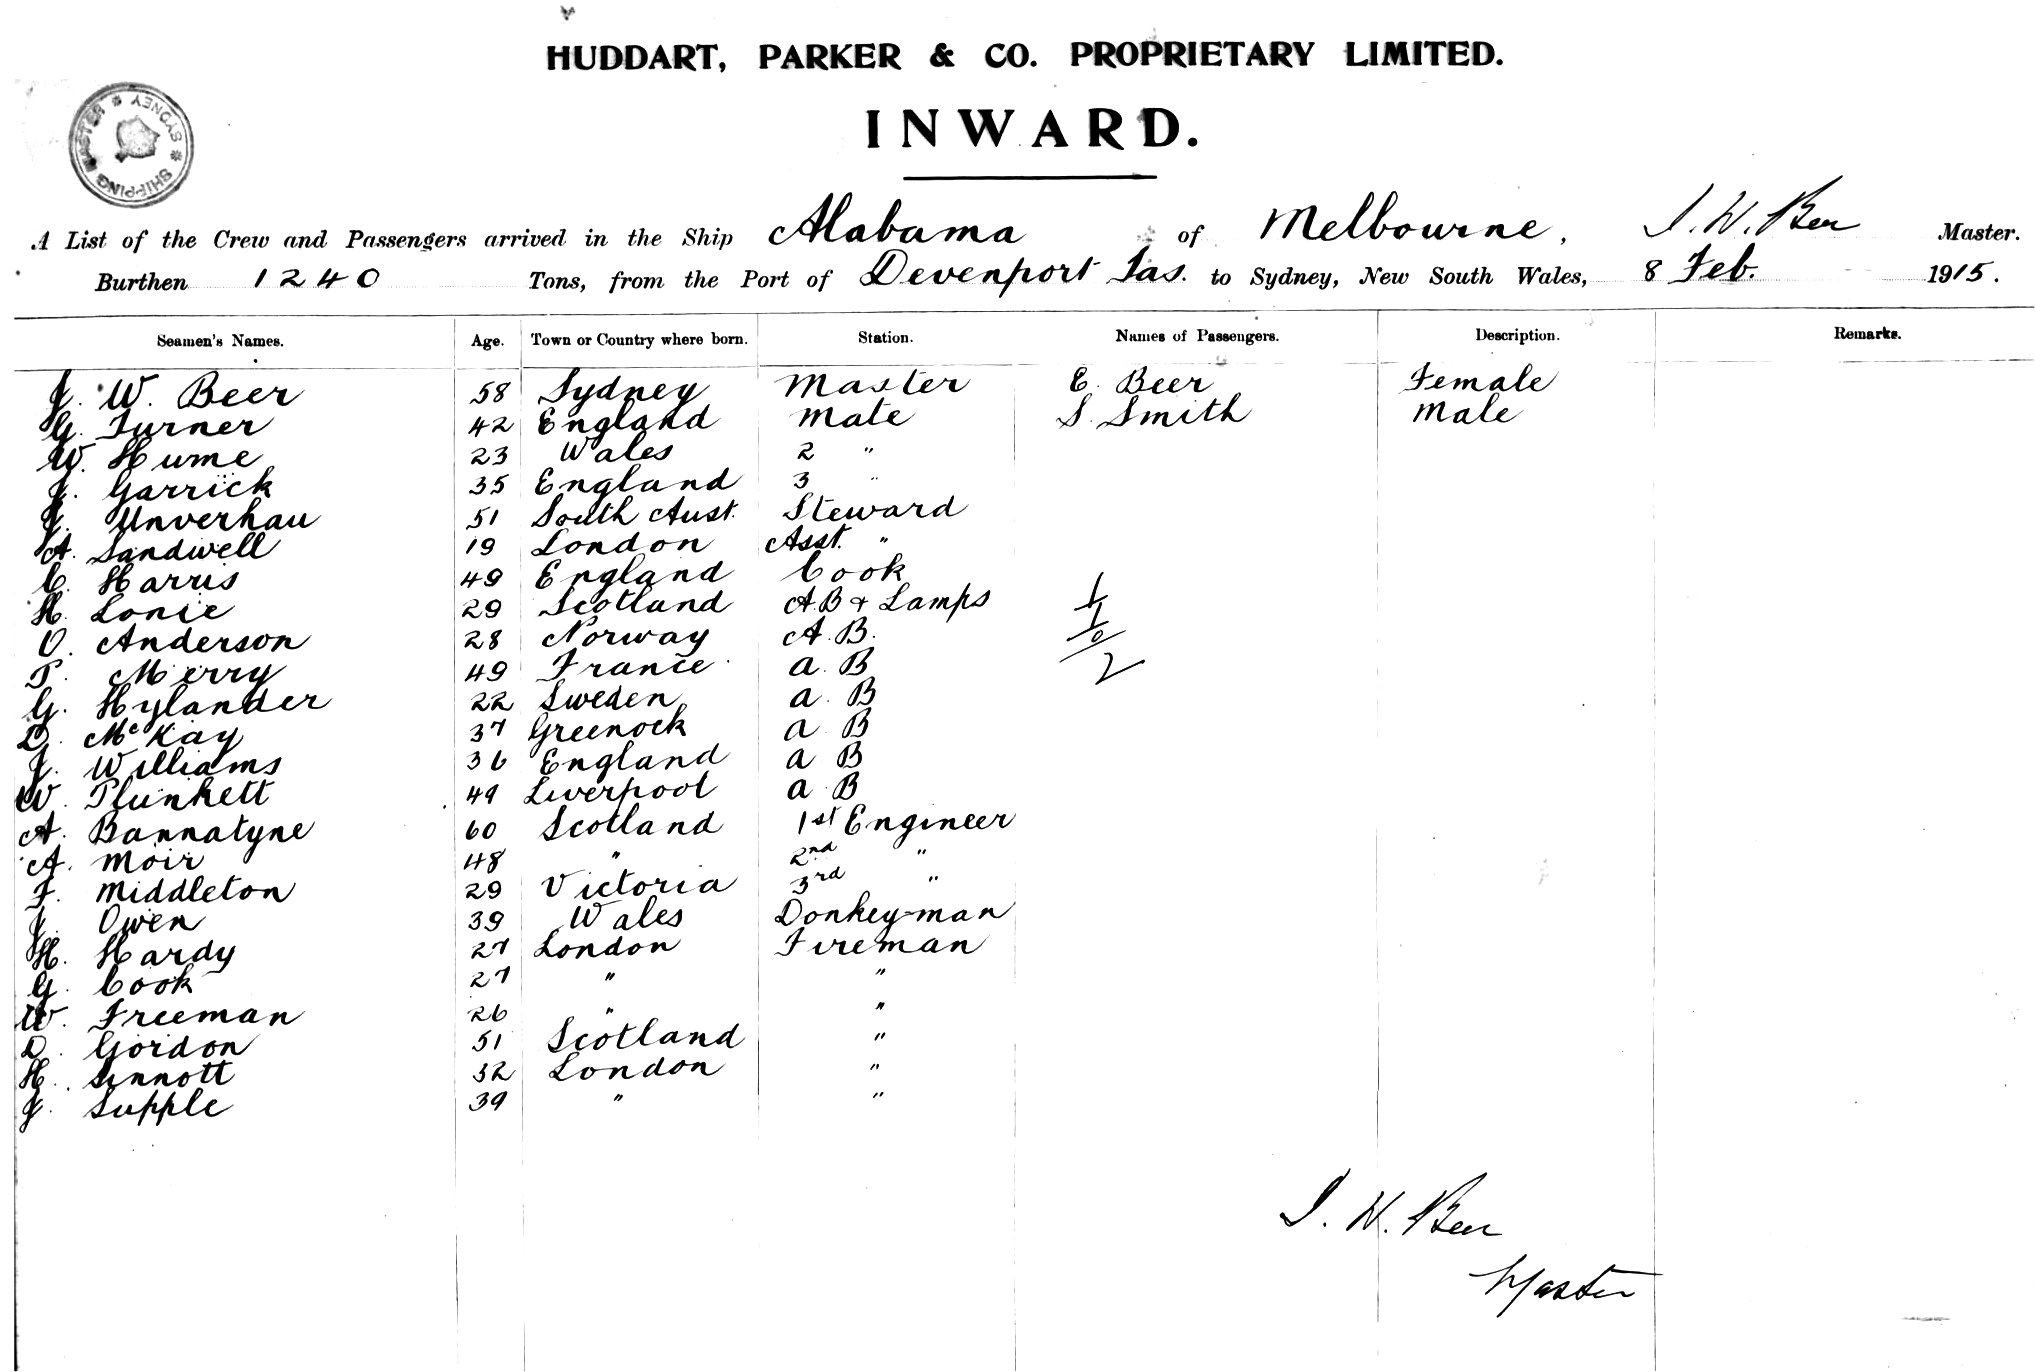 HUDDART, PARKER & CO. PROPRIETARY LIMITED.
INWARD.
SHIPPING MASTER * SYDNEY *
A List of the Crew and Passengers arrived in the Ship Alabama of Melbourne, J. W. Beer Master.
Burthen 1240 Tons, from the Port of Devenport Tas. to Sydney, New South Wales, 8 Feb. 1915.
Seamen's Names. Age. Town or Country where born. Station. Names of Passengers. Description. Remarks.
J. W. Beer 58 Sydney Master E. Beer Female
G. Turner 42 England Mate S. Smith Male
W. Hume 23 Wales 2 "
J. Garrick 35 England 3 "
J. Unverhau 51 South Aust. Steward
A. Sandwell 19 London Asst. "
C. Harris 49 England Cook
H. Lonie 29 Scotland A.B & Lamps 1
O. Anderson 28 Norway A.B. 1
P. Merry 49 France a. B 2
G. Hylander 22 Sweden a. B
D. McKay 37 Greenock a B
J. Williams 36 England a B
W. Plunkett 49 Liverpool a B
A. Bannatyne 60 Scotland 1st Engineer
A. Moir 48 " 2nd "
F. Middleton 29 Victoria 3rd "
J. Owen 39 Wales Donkey-man
H. Hardy 27 London Fireman
G. Cook 27 " "
W. Freeman 26 " "
D. Gordon 51 Scotland "
H. Sinnott 32 London "
J. Supple 39 " "
J. W. Beer
Master